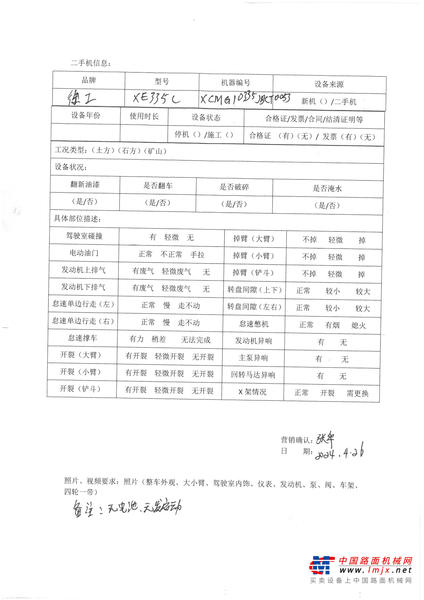 二手机信息:
品牌 型号 机器编号 设备来源
徐工 XE335C XCMG10335JBCT0053 新机()/二手机
设备年份 使用时长 设备状态 合格证/发票/合同/结清证明等
停机()/施工() 合格证 (有)(无)/ 发票(有)(无)
工况类型:(土方)(石方)(矿山)
设备状况:
翻新油漆 是否翻车 是否破碎 是否淹水
(是/否) (是/否) (是/否) (是/否)
具体部位描述:
驾驶室碰撞 有 轻微 无 掉臂(大臂) 不掉 轻微 掉
电动油门 正常 不正常 手拉 掉臂(小臂) 不掉 轻微 掉
发动机上排气 有废气 轻微废气 无 掉臂(铲斗) 不掉 轻微 掉
发动机下排气 有废气 轻微废气 无 转盘间隙(上下) 正常 较小 较大
怠速单边行走(左) 正常 慢 走不动 转盘间隙(左右) 正常 较小 较大
怠速单边行走(右) 正常 慢 走不动 怠速憋机 正常 有烟 熄火
怠速撑车 有力 稍差 无法完成 发动机异响 有 无
开裂(大臂) 有开裂 轻微开裂 无开裂 主泵异响 有 无
开裂(小臂) 有开裂 轻微开裂 无开裂 回转马达异响 有 无
开裂(铲斗) 有开裂 轻微开裂 无开裂 X架情况 正常 开裂 需更换
营销确认:
日 期: 2024.4.26
照片、视频要求:照片(整车外观、大小臂、驾驶室内饰、仪表、发动机、泵、阀、车架、
四轮一带)
备注:无电池,无发动
中国路面机械网
www.lmjx.net
买卖设备上中国路面机械网